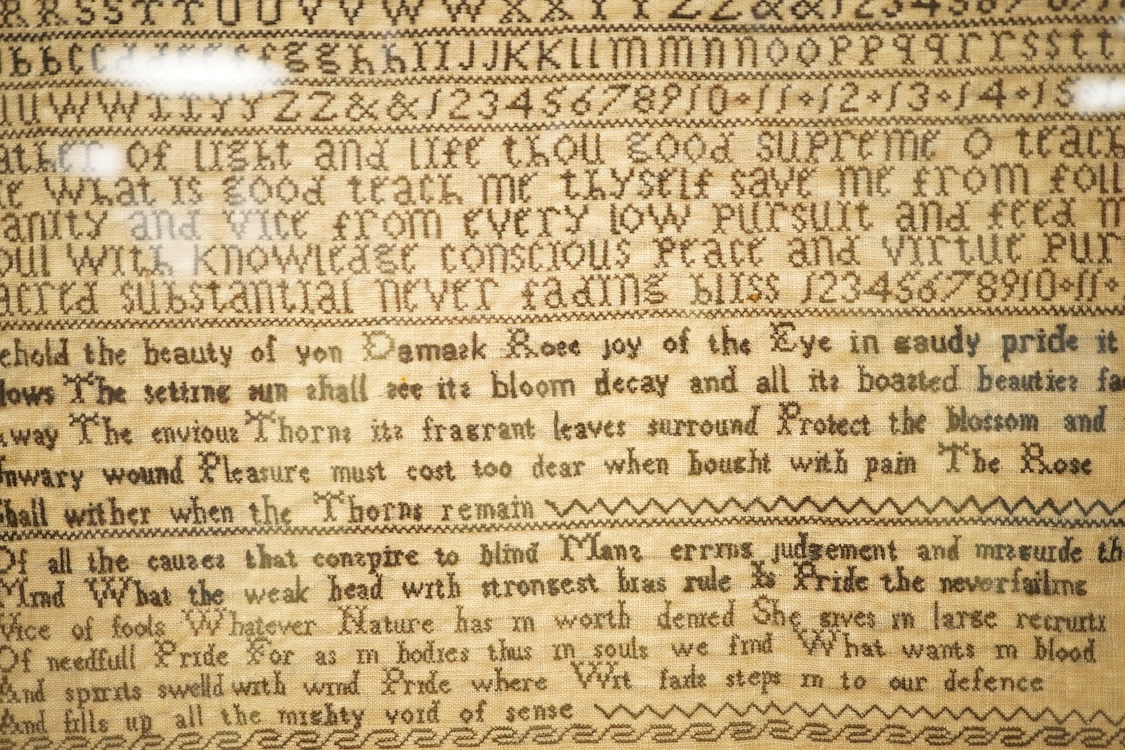 R R S S T T U U V V W W X X Y Y Z Z & & 1 2 3 4 5 6 7
b b c g g h h I I J J K K l l m m n n o o p p q q r r s s t t
U W W Y Y Z Z & & 1 2 3 4 5 6 7 8 9 10 11 12 13 14
of light and life thou good supreme O teach
What is good teach me thyself save me from foll
anity and vice from every low pursuit and feed m
oul with knowledge conscious Peace and virtue pur
acred substantial never fading bliss 1 2 3 4 5 6 7 8 9 10 11
ehold the beauty of yon Damask Rose joy of the Eye in gaudy pride it
lows The setting sun shall see its bloom decay and all its boasted beauties fa
way The envious Thorns its fragrant leaves surround Protect the blossom and
nwary wound Pleasure must cost too dear when bought with pain The Rose
Shall wither when the Thorns remain
Of all the causes that conspire to blind Mans erring judgement and misguide th
Mind What the weak head with strongest bias rule Is Pride the neverfailing
Vice of fools Whatever Nature has in worth denied She gives in large recruits
Of needfull Pride For as in bodies thus in souls we find What wants in blood
And spirits swelld with wind Pride where Wit fails steps in to our defence
And fills up all the mighty void of sense